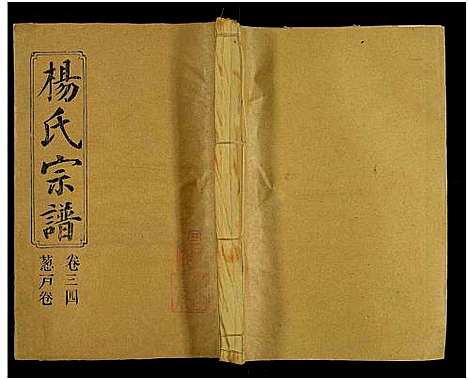 楊氏宗譜
卷三四
葱戸卷